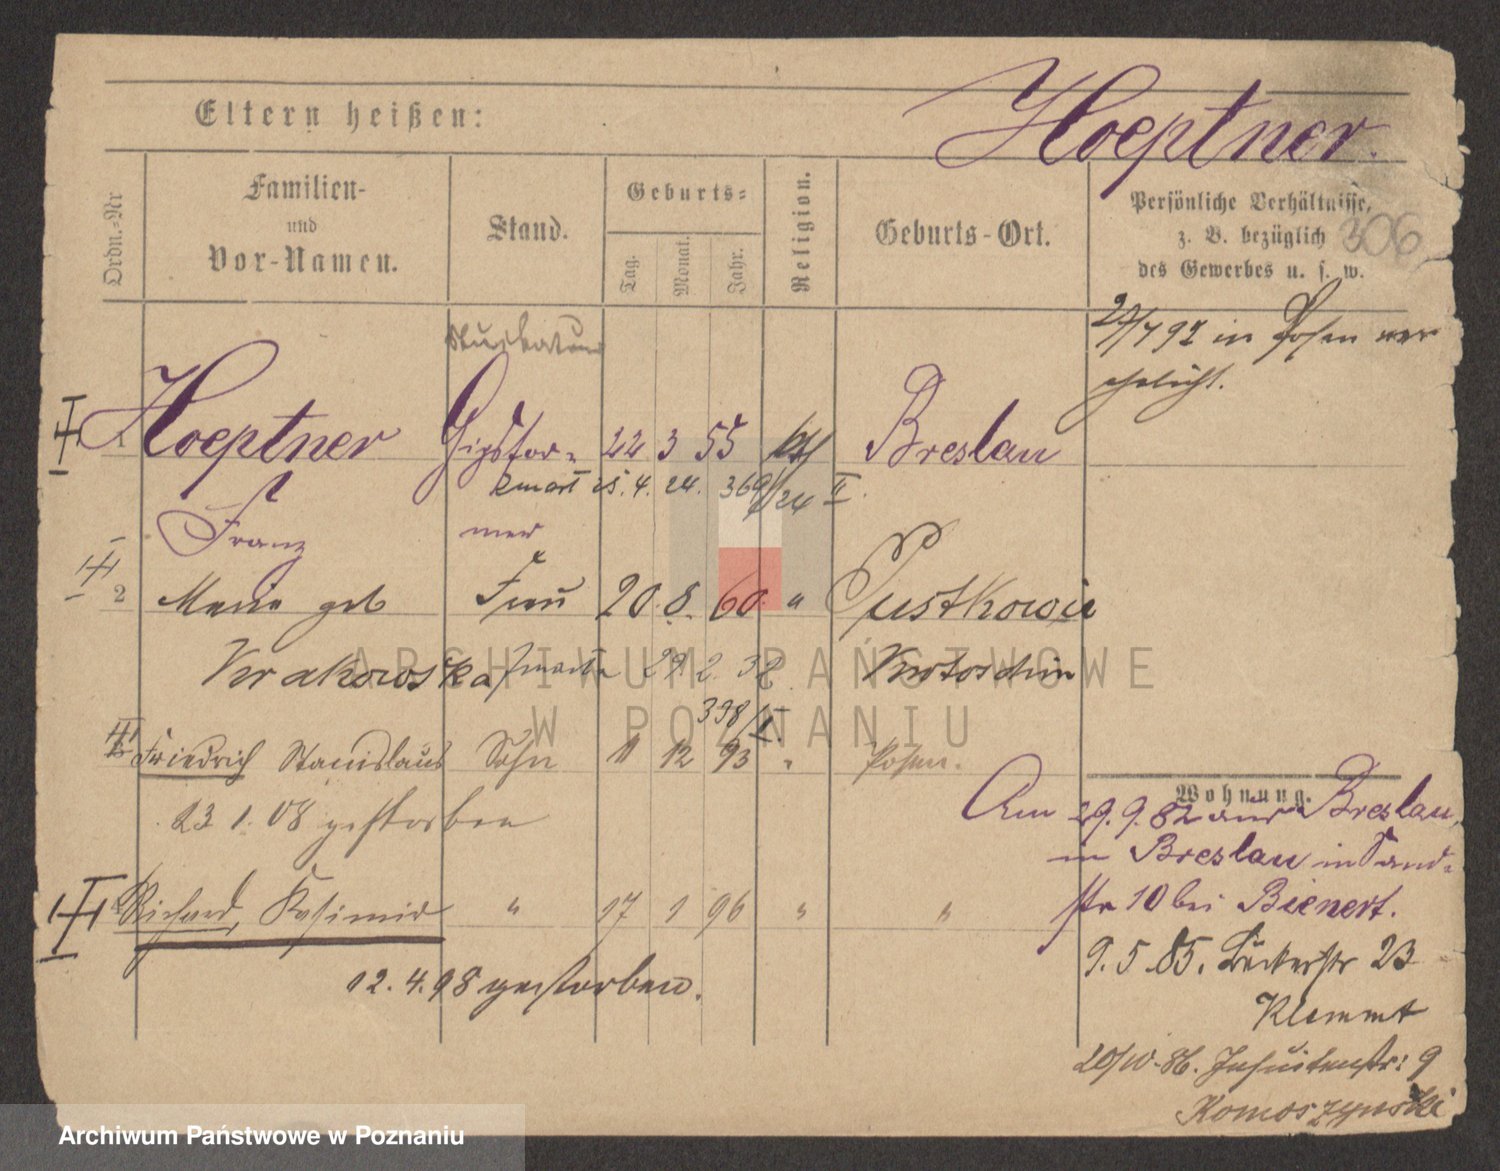 Eltern heißen:
Hoeptner.
Ordn.-Nr
Familien-
und
Vor-Namen.
Stand.
Geburts-
Tag.
Monat.
Jahr.
Religion.
Geburts-Ort.
Persönliche Verhältnisse,
z. B. bezüglich
des Gewerbes u. s. w.
306
in Posen ver
ehelicht.
1 Hoeptner Gipsfor- 22 3 55 kth Breslau
25. 4. 24. 369/24 II.
Franz mer
2 Marie geb Frau 20. 8. 60. " Pustkowie
Krakowska 29. 2. 32 Krotoschin
398/II.
3 Friedrich Stanislaus Sohn 11 12 93 " Posen.
23 1. 08 gestorben
Richard, Kasimir " 17 1 96 " "
12. 4. 98 gestorben.
Wohnung.
Am 29. 9. 82 aus Breslau,
in Breslau in Sand-
str 10 bei Bienert.
9. 5. 85. 23
Klemmt
20/10. 86. Jesuitenstr: 9
Komoszynski
ARCHIWUM PAŃSTWOWE
W POZNANIU
Archiwum Państwowe w Poznaniu